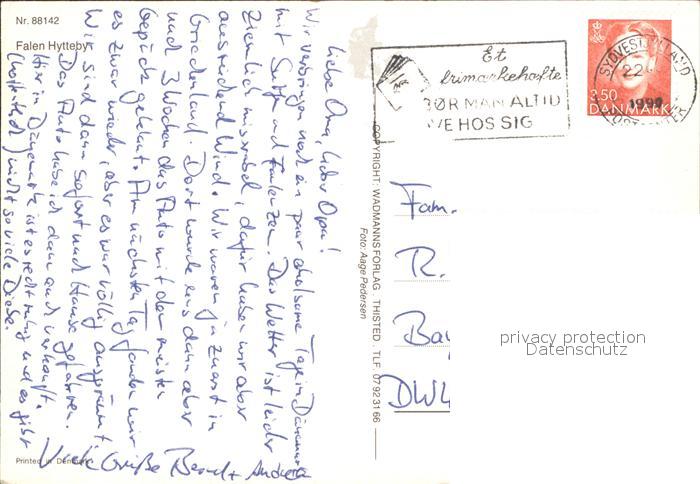 Nr. 88142
Falen Hytteby
Liebe Oma, lieber Opa!
Wir verbringen noch ein paar erholsame Tage in Dänemark
mit Surfen und Faulenzen. Das Wetter ist leider
ziemlich miserabel, dafür haben wir aber
ausreichend Wind. Wir waren ja zuerst in
Griechenland. Dort wurde uns dann aber
nach 3 Wochen das Auto mit dem meisten
Gepäck geklaut. Am nächsten Tag fanden wir
es zwar wieder, aber es war völlig ausgeräumt.
Wir sind dann sofort nach Hause gefahren.
Das Auto habe ich dann auch verkauft.
Hier in Dänemark ist es recht ruhig und es gibt
(hoffentlich) nicht so viele Diebe.
Viele Grüße Bernd + Andrea
Printed in Denmark
COPYRIGHT: WADMANNS FORLAG . THISTED . TLF. 07 92 31 66
Foto: Aage Pedersen
Et
brimærkehæfte
BØR MAN ALTID
HAVE HOS SIG
SYDVESTJYLLAND
22
1990
POSTCENTER
3.50
DANMARK
Fam.
R.
Bay
DW4
privacy protection
Datenschutz